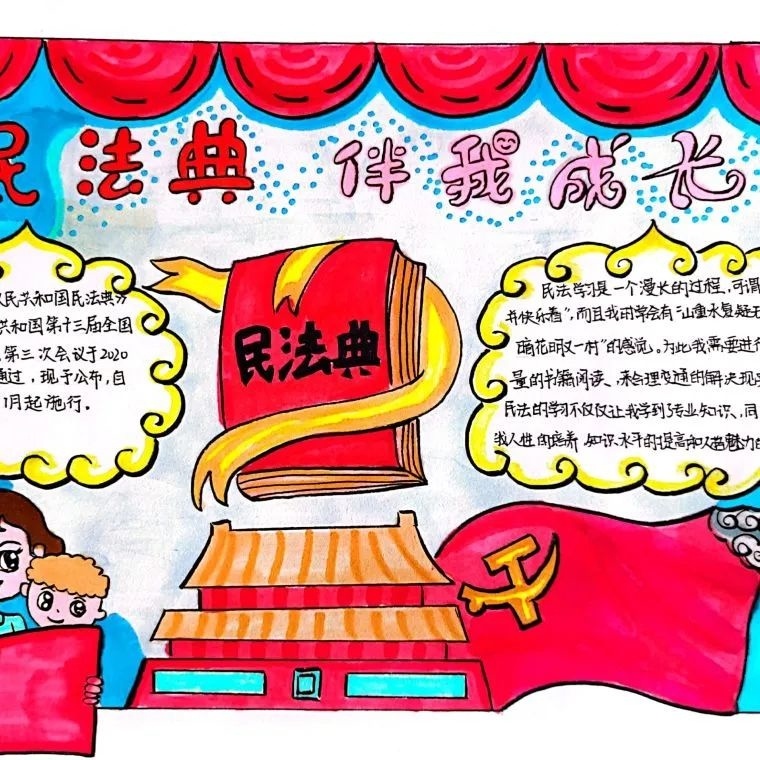 民法典 伴我成长
民法典
民共和国民法典》
共和国第十三届全国
第三次会议于2020
通过，现于公布，自
1月起施行。
民法学习是一个漫长的过程，可谓
并快乐着"，而且我时常会有"山重水复疑无
暗花明又一村"的感觉。为此我需要进行
量的书籍阅读、来合理变通的解决现实
民法的学习不仅仅让我学到了专业知识、同
我人性的培养 知识水平的提高和人格魅力的